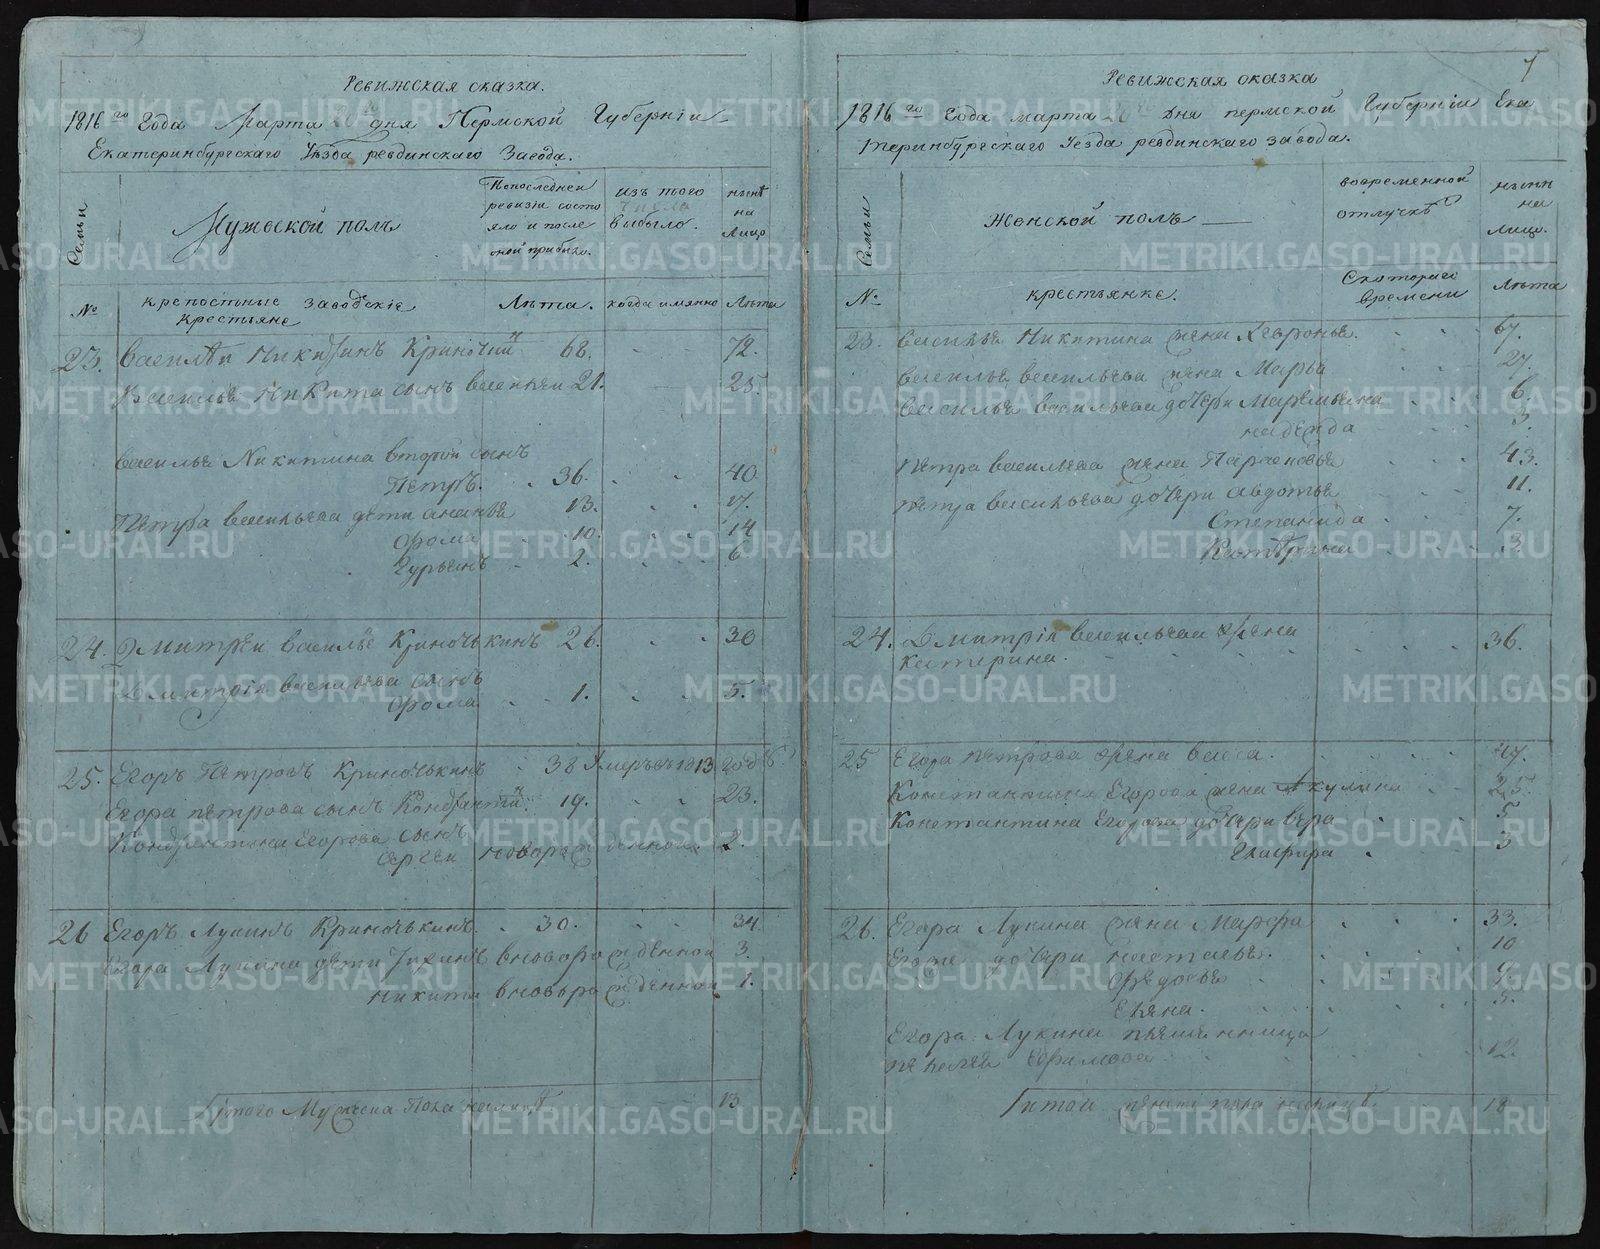 Ревижская сказка.
1816го Года Марта 20 дня Пермской Губернiи
Екатеринбургскаго Уезда ревдинскаго Завода.
Семьи
Мужеской полъ
Попоследней ревизiи состо яло и после оной прибыло.
изъ того числа выбыло.
нынѣ на Лицо
№ крепостьные заводскiе крестьяне
Лѣта. когда имянно Лѣта
23. Василѣи Никитинъ Криночкин 68. 72.
Василья Никита сынъ василеи 21. 25.
Василья Никитина второй сынъ
Петръ. 36. 40
Петра васильева дети ананья 13. 17.
Фома 10. 14
Гурьянъ 2. 6
24. Дмитрѣи василье Криночькинъ 26. 30
Дмитрiя васильева сынъ
Фома 1. 5.
25. Егоръ Петровъ Криночькинъ 38 Умеръ въ 1813 годѣ
Егора петрова сынъ 19. 23.
Егорова сынъ
Сергеи новорожденной 2.
26 Егоръ Лукинъ Криночькинъ. 30. 34
Егора Лукина дети вновьрожденной 3.
Никита вновьрожденной 1.
Итого Мужеска Пола налицѣ 13
7
Ревижская сказка
1816го года марта 20 дня пермской Губернiи Ека
теринбургскаго Уезда ревдинскаго завода.
Семьи
Женской полъ
вовременной отлучкѣ
нынѣ на лицо.
№ крестьянке.
Скотораго времени
Лѣта
23. Василья Никитина жена Хевронья. 67.
василья васильева жена Марья 27.
василья васильева дочери Маремьяна 6.
надежда 3.
Петра васильева жена Парасковья 43.
петра васильева дочери авдотья 11.
Степанида 7.
Катерина 3.
24. Дмитрiя васильева жена
катерина. 36.
25 Егора петрова жена васса. 47.
Константина Егорова жена Акулина 25.
Константина Егорова дочери вера 5
3
26. Егора Лукина жена Марфа 33.
Егоже дочери настасья. 10
Федосья 9
5.
Егора Лукина племянница
пелагея ефимова 12.
Итого женска пола налицѣ 18
METRIKI.GASO-URAL.RU